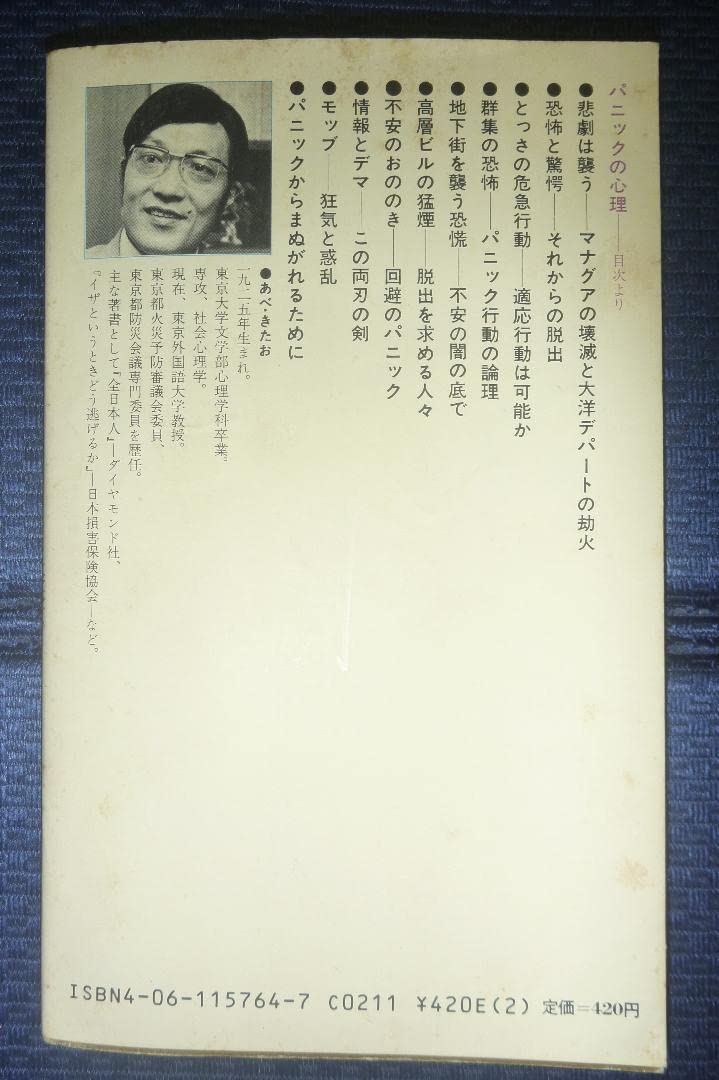 パニックの心理――目次より
●悲劇は襲う――マナグアの壊滅と大洋デパートの劫火
●恐怖と驚愕――それからの脱出
●とっさの危急行動――適応行動は可能か
●群集の恐怖――パニック行動の論理
●地下街を襲う恐慌――不安の闇の底で
●高層ビルの猛煙――脱出を求める人々
●不安のおののき――回避のパニック
●情報とデマ――この両刃の剣
●モッブ――狂気と惑乱
●パニックからまぬがれるために
●あべ・きたお
一九二五年生まれ。
東京大学文学部心理学科卒業。
専攻、社会心理学。
現在、東京外国語大学教授。
東京都火災予防審議会委員、
東京都防災会議専門委員を歴任。
主な著書として『全日本人』―ダイヤモンド社、
『イザというときどう逃げるか』―日本損害保険協会―など。
ISBN4-06-115764-7 C0211 ¥420E(2) 定価=420円